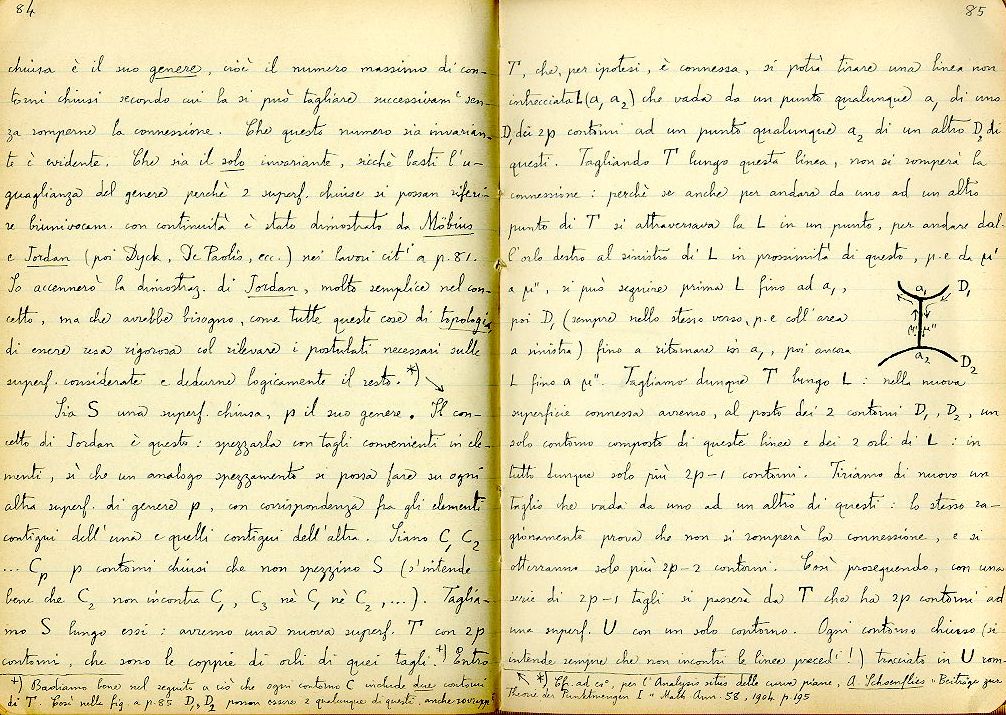 84
chiusa è il suo genere, cioè il numero massimo di con-
torni chiusi secondo cui la si può tagliare successivamte sen-
za romperne la connessione. Che questo numero sia invarian-
te è evidente. Che sia il solo invariante, sicchè basti l'u-
guaglianza del genere perchè 2 superf. chiuse si possan riferi-
re biunivocam. con continuità è stato dimostrato da Möbius
e Jordan (poi Dyck, De Paolis, ecc.) nei lavori citti a p. 81.
Io accennerò la dimostraz. di Jordan, molto semplice nel con-
cetto, ma che avrebbe bisogno, come tutte queste cose di topologia
di essere resa rigorosa col rilevare i postulati necessari sulle
superf. considerate e dedurne logicamente il resto. *)
Sia S una superf. chiusa, p il suo genere. Il con-
cetto di Jordan è questo: spezzarla con tagli convenienti in ele-
menti, sì che un analogo spezzamento si possa fare su ogni
altra superf. di genere p, con corrispondenza fra gli elementi
contigui dell'una e quelli contigui dell'altra. Siano C1 C2
... Cp p contorni chiusi che non spezzino S (s'intende
bene che C2 non incontra C1, C3 nè C1 nè C2, ...). Taglia-
mo S lungo essi: avremo una nuova superf. T con 2p
contorni, che sono le coppie di orli di quei tagli. +) Entro
+) Badiamo bene nel seguito a ciò che ogni contorno C include due contorni
di T. Così nella fig. a p. 85 D1, D2 posson essere 2 qualunque di questi, anche
85
T, che, per ipotesi, è connessa, si potrà tirare una linea non
intrecciata L(a1 a2) che vada da un punto qualunque a1 di uno
D1 dei 2p contorni ad un punto qualunque a2 di un altro D2 di
questi. Tagliando T lungo questa linea, non si romperà la
connessione: perchè se anche per andare da uno ad un altro
punto di T si attraversava la L in un punto, per andare dal-
l'orlo destro al sinistro di L in prossimità di questo, p. e. da μ'
a μ", si può seguire prima L fino ad a1,
poi D1 (sempre nello stesso verso, p. e. coll'area
a sinistra) fino a ritornare in a1, poi ancora
L fino a μ". Tagliamo dunque T lungo L: nella nuova
a1 D1
μ' μ"
a2 D2
superficie connessa avremo, al posto dei 2 contorni D1, D2, un
solo contorno composto di queste linee e dei 2 orli di L: in
tutto dunque solo più 2p-1 contorni. Tiriamo di nuovo un
taglio che vada da uno ad un altro di questi: lo stesso ra-
gionamento prova che non si romperà la connessione, e si
otterranno solo più 2p-2 contorni. Così proseguendo, con una
serie di 2p-1 tagli si passerà da T che ha 2p contorni ad
una superf. U con un solo contorno. Ogni contorno chiuso (si
intende sempre che non incontri le linee precedti!) tracciato in U rom-
*) Cfr. ad es°, per l'Analysis situs delle curve piane, A. Schoenflies "Beiträge zur
Theorie der Punktmengen I" Math Ann. 58, 1904 p. 195